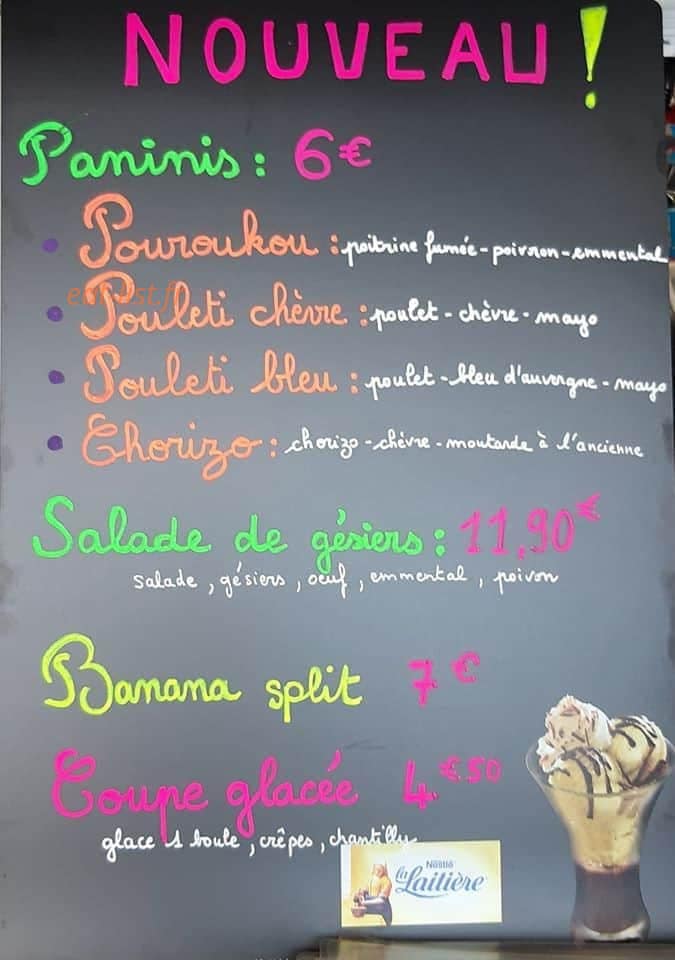 NOUVEAU !
Paninis : 6€
• Pouroukou : poitrine fumée - poivron - emmental
• Pouleti chèvre : poulet - chèvre - mayo
• Pouleti bleu : poulet - bleu d'auvergne - mayo
• Chorizo : chorizo - chèvre - moutarde à l'ancienne
Salade de gésiers : 11,90€
salade , gésiers , oeuf , emmental , poivon
Banana split 7€
Coupe glacée 4.€50
glace 1 boule , crêpes , chantilly
Nestlé
la Laitière